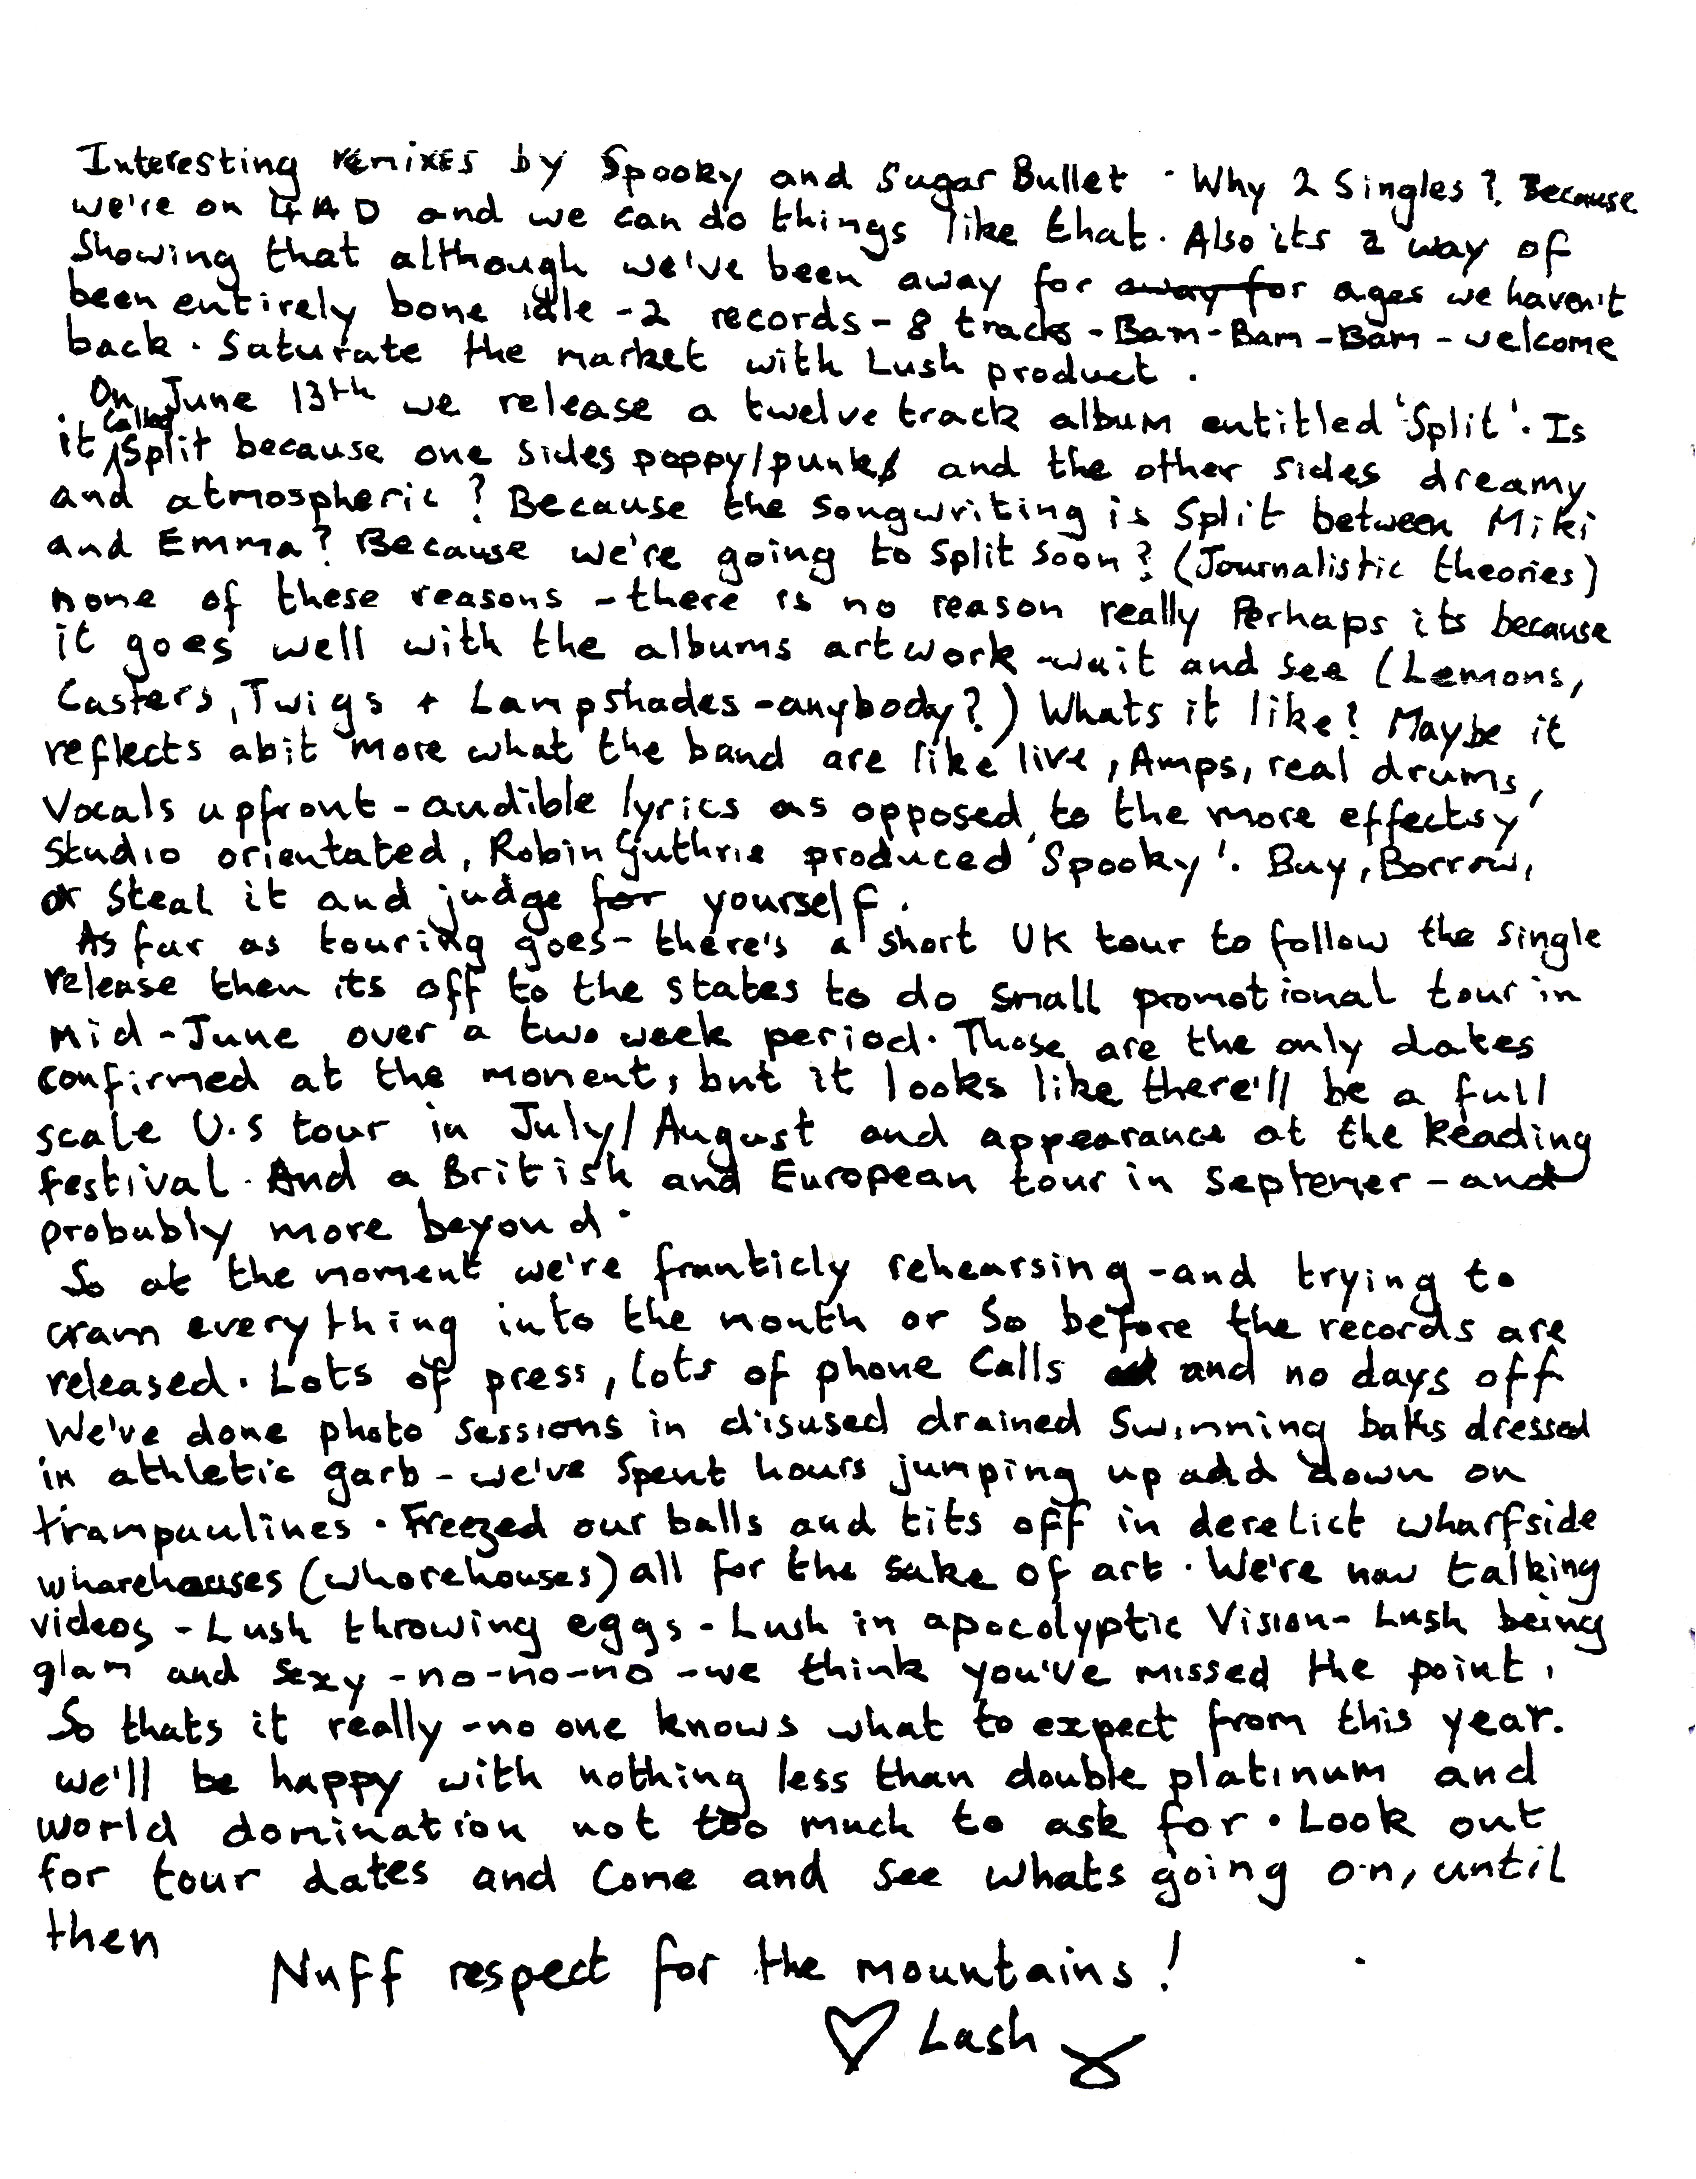 Interesting remixes by Spooky and Sugar Bullet. Why 2 Singles? Because
we're on 4AD and we can do things like that. Also its a way of
Showing that although we've been away for away for ages we haven't
been entirely bone idle - 2 records - 8 tracks - Bam - Bam - Bam - welcome
back. Saturate the market with Lush product.
On June 13th we release a twelve track album entitled 'Split'. Is
it called Split because one sides poppy/punk and the other sides dreamy
and atmospheric? Because the songwriting is Split between Miki
and Emma? Because we're going to split soon? (Journalistic theories)
none of these reasons - there is no reason really Perhaps its because
it goes well with the albums artwork - wait and see (Lemons,
Casters, Twigs + Lampshades - anybody?) Whats it like? Maybe it
reflects abit more what the band are like live, Amps, real drums,
Vocals upfront - audible lyrics as opposed to the more effectsy
Studio orientated, Robin Guthrie produced 'Spooky'. Buy, Borrow,
or Steal it and judge for yourself.
As far as touring goes - there's a short UK tour to follow the single
release then its off to the states to do small promotional tour in
Mid-June over a two week period. Those are the only dates
confirmed at the moment, but it looks like there'll be a full
scale U.S tour in July/August and appearance at the Reading
festival. And a British and European tour in Septemer - and
probably more beyond.
So at the moment we're franticly rehearsing - and trying to
cram everything into the month or so before the records are
released. Lots of press, lots of phone calls and no days off
We've done photo sessions in disused drained swimming baths dressed
in athletic garb - we've spent hours jumping up and down on
trampaulines. Freezed our balls and tits off in derelict wharfside
wharehouses (whorehouses) all for the sake of art. We're now talking
videos - Lush throwing eggs - Lush in apocolyptic Vision - Lush being
glam and sexy - no - no - no - we think you've missed the point.
So thats it really - no one knows what to expect from this year.
We'll be happy with nothing less than double platinum and
world domination not too much to ask for. Look out
for tour dates and come and see whats going on, until
then
Nuff respect for the mountains!
♡ Lush